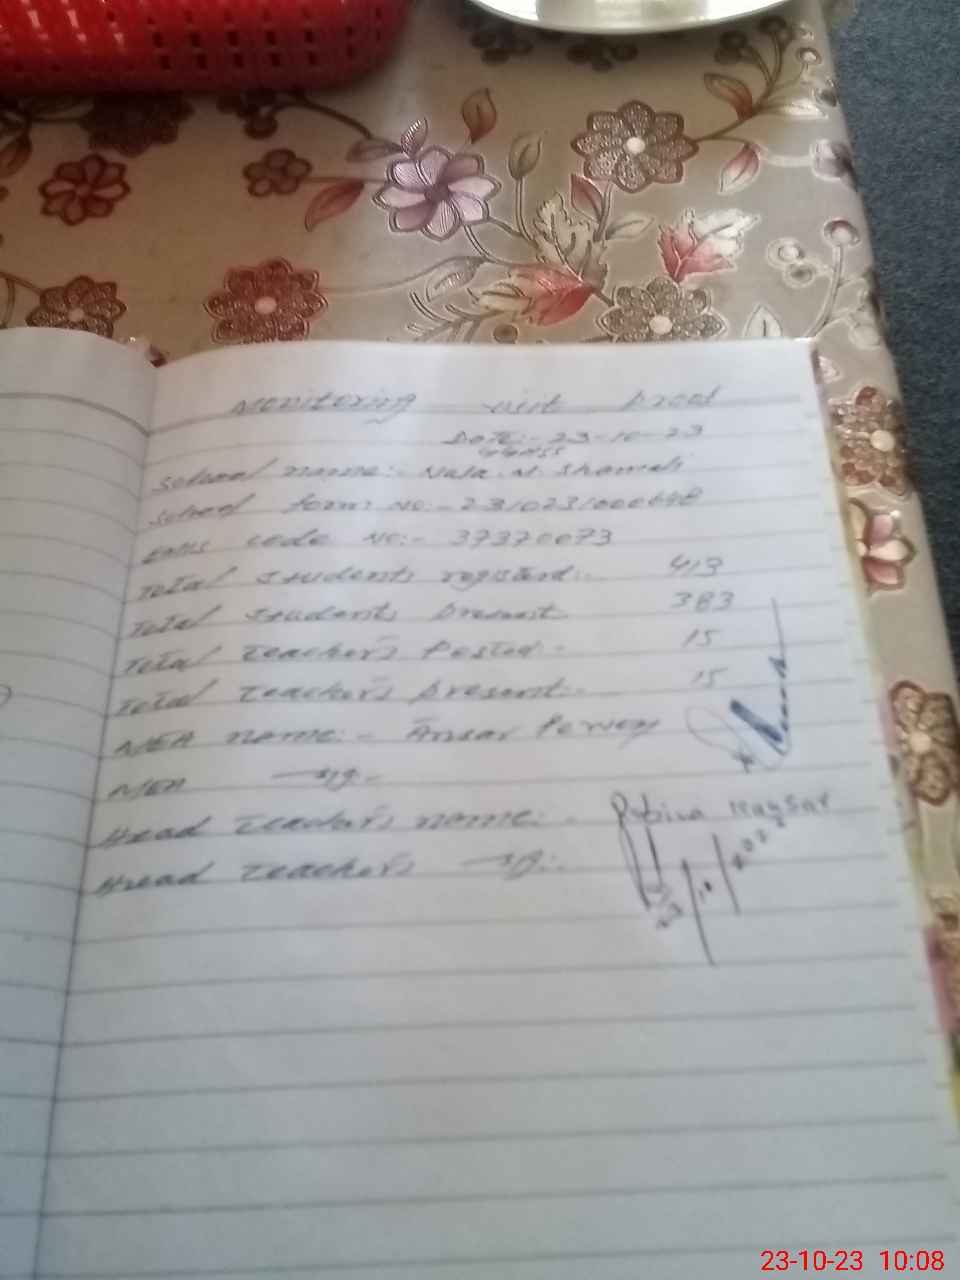 Monitoring visit proof
Date:- 23-10-23
GGHSS
School name:- Nala M. Shamali
School form No:- 2310231000648
EMIS code No:- 37370073
Total students registerd:- 413
Total students present 383
Total teacher's Posted:- 15
Total teacher's present:- 15
MEA name:- Ansar Pervez
MEA sig:-
Head teacher's name:- Rubina Kausar
Head teacher's sig:-
23/10/2023
23-10-23 10:08